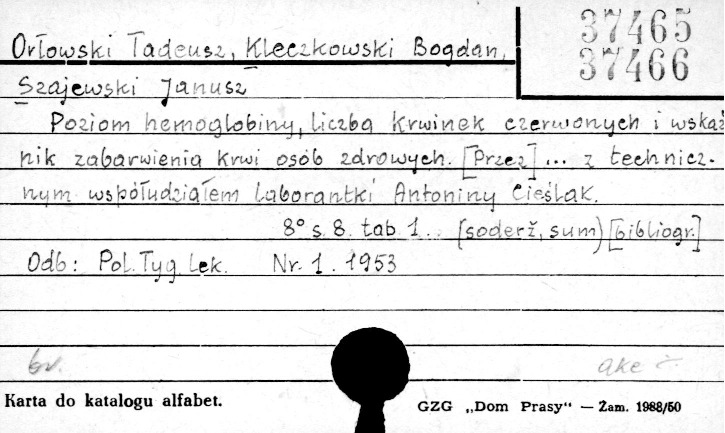 37465
37466
Orłowski Tadeusz, Kleczkowski Bogdan,
Szajewski Janusz
Poziom hemoglobiny, liczba krwinek czerwonych i wskaź
nik zabarwienia krwi osób zdrowych. [Przez] ... z technicz-
nym współudziałem laborantki Antoniny Cieślak.
8° s. 8. tab 1.. [soderž, sum) [bibliogr.]
Odb: Pol. Tyg. Lek. Nr. 1. 1953
bv. ake
Karta do katalogu alfabet.
GZG „Dom Prasy“ — Zam. 1988/50